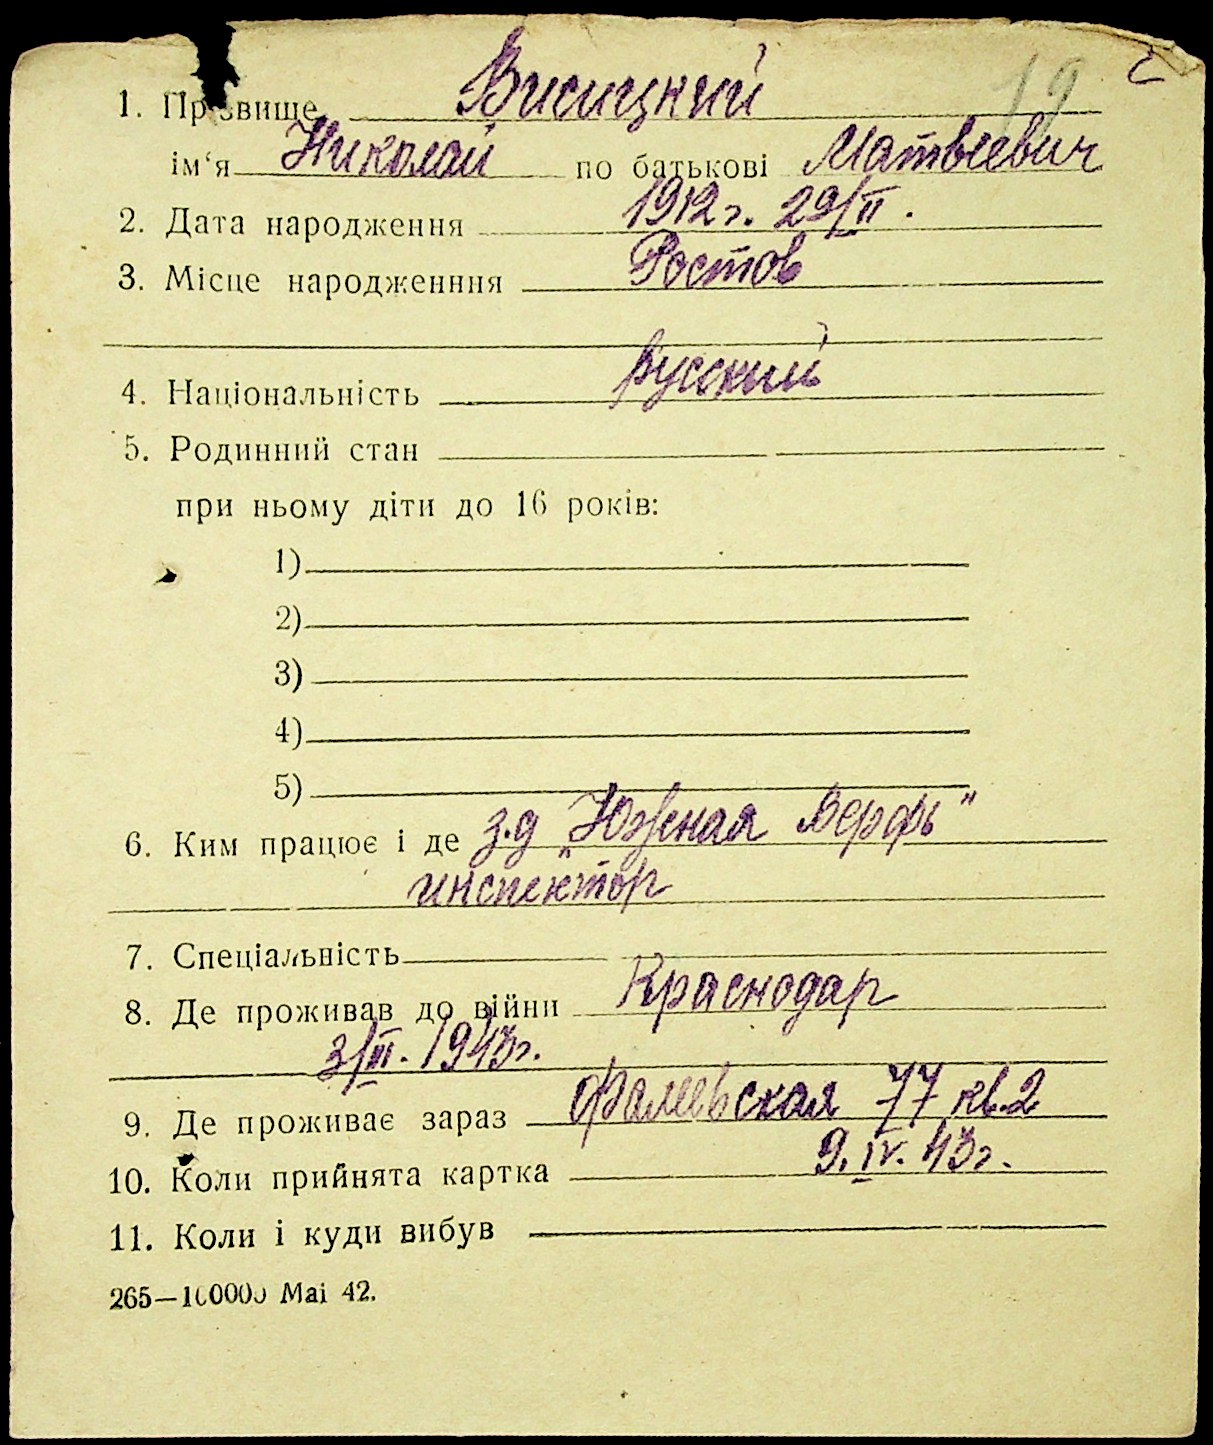 19
1. Прізвище Висицкий
ім‘я Николай по батькові Матвеевич
2. Дата народження 1912г. 29/II.
3. Місце народженння Ростов
4. Національність русский
5. Родинний стан
при ньому діти до 16 років:
1)
2)
3)
4)
5)
6. Ким працює і де з-д „Южная Верфь"
инспектор
7. Спеціальність
8. Де проживав до війни Краснодар
3/III. 1943г.
9. Де проживає зараз Фалеевская 77 кв.2
10. Коли прийнята картка 9.IV.43г.
11. Коли і куди вибув
265—100000 Mai 42.